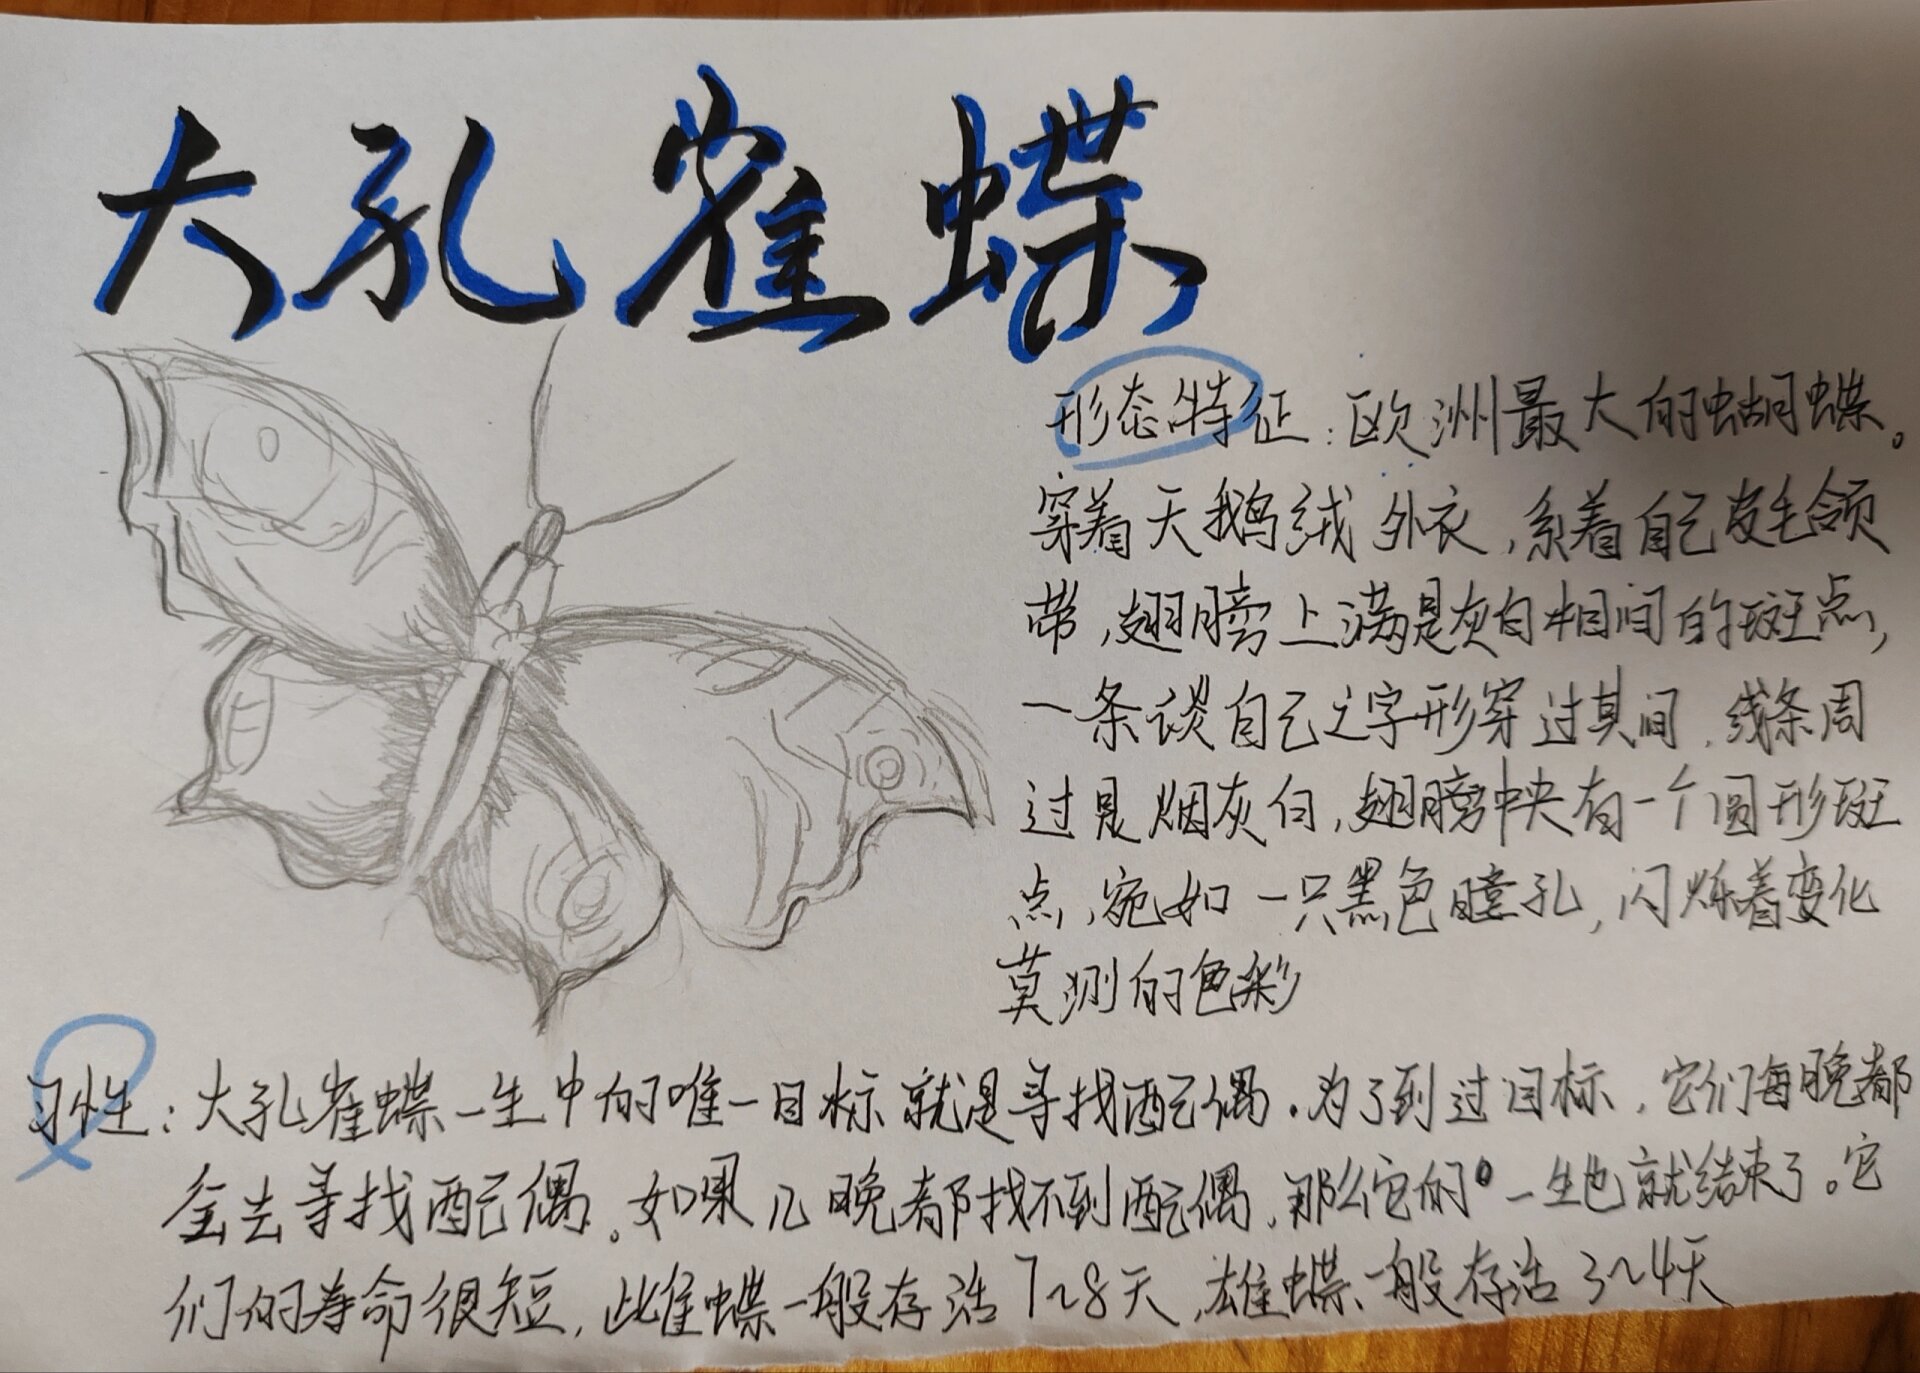 大孔雀蝶
形态特征：欧洲最大的蝴蝶。
穿着天鹅绒外衣，系着自己皮毛领
带，翅膀上满是灰白相间的斑点，
一条谈自己之字形穿过其间，线条周
过是烟灰白，翅膀中央有一个圆形斑
点，宛如一只黑色瞳孔，闪烁着变化
莫测的色彩
习性：大孔雀蝶一生中的唯一目标就是寻找配偶。为了到过目标，它们每晚都
会去寻找配偶。如果几晚都找不到配偶，那么它的一生也就结束了。它
们的寿命很短，此雌蝶一般存活7~8天，雄蝶一般存活3~4天